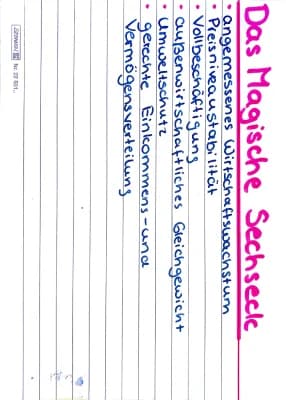 Das Magische Sechseck
• angemessenes Wirtschaftswachstum
• Preisniveaustabilität
• Vollbeschäftigung
• außenwirtschaftliches Gleichgewicht
• Umweltschutz
• gerechte Einkommens- und
Vermögensverteilung